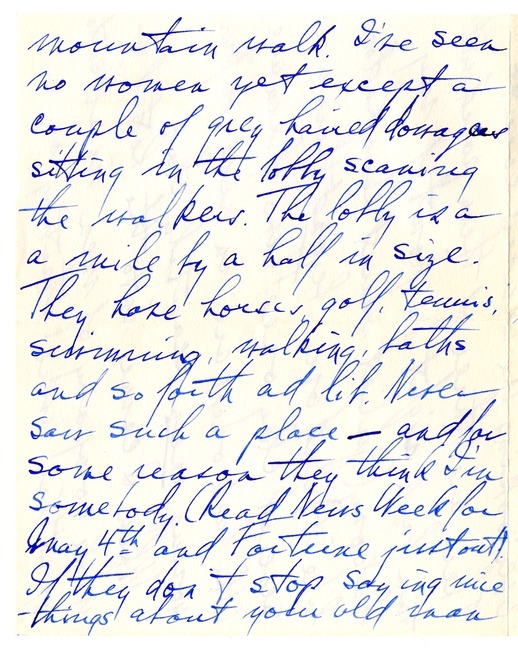 mountain walk. I've seen
no women yet except a
couple of grey haired dowagers
sitting in the lobby scaning
the walkers. The lobby is a
a mile by a half in size.
They have horses, golf, tennis,
swimming, walking, baths
and so forth ad lib. Never
saw such a place — and for
some reason they think I'm
somebody. (Read News Week for
May 4th and Fortune just out!
If they don't stop saying nice
things about your old man